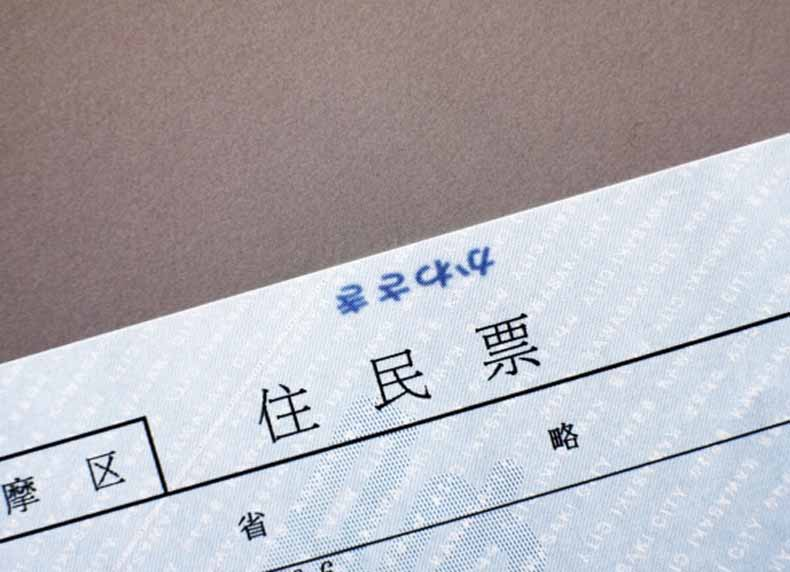 かわさき
住民票
摩区
省略
KAWASAKI CITY